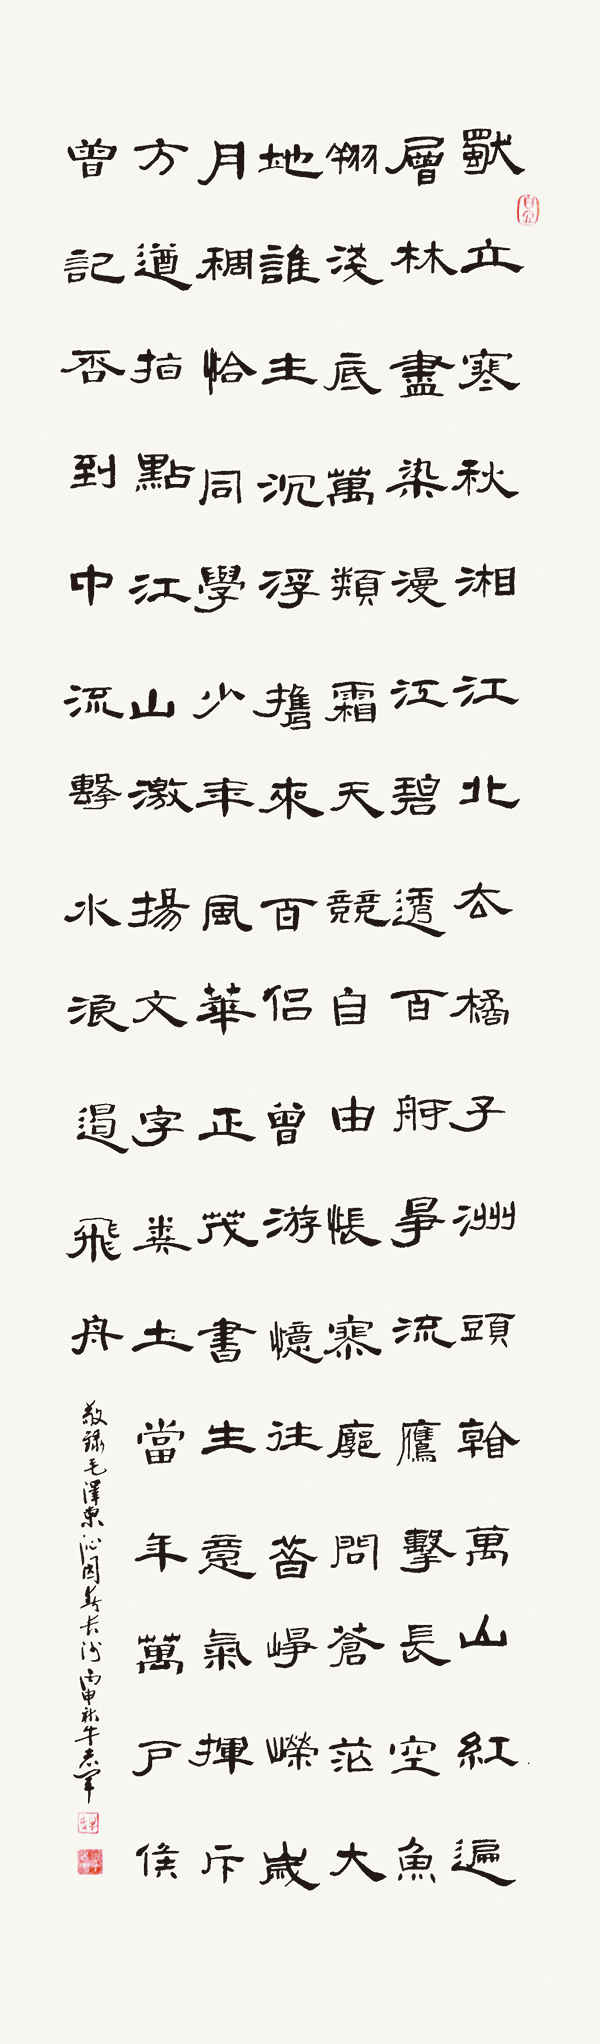 獨立寒秋湘江北去橘子洲頭看萬山紅遍
層林盡染漫江碧透百舸爭流鷹擊長空魚
翔淺底萬類霜天競自由悵寥廓問蒼茫大
地誰主沉浮攜來百侶曾游憶往昔崢嶸歲
月稠恰同學少年風華正茂書生意氣揮斥
方遒指點江山激揚文字糞土當年萬戶侯
曾記否到中流擊水浪遏飛舟
敬録毛澤東沁園春長沙丙申秋牛志军